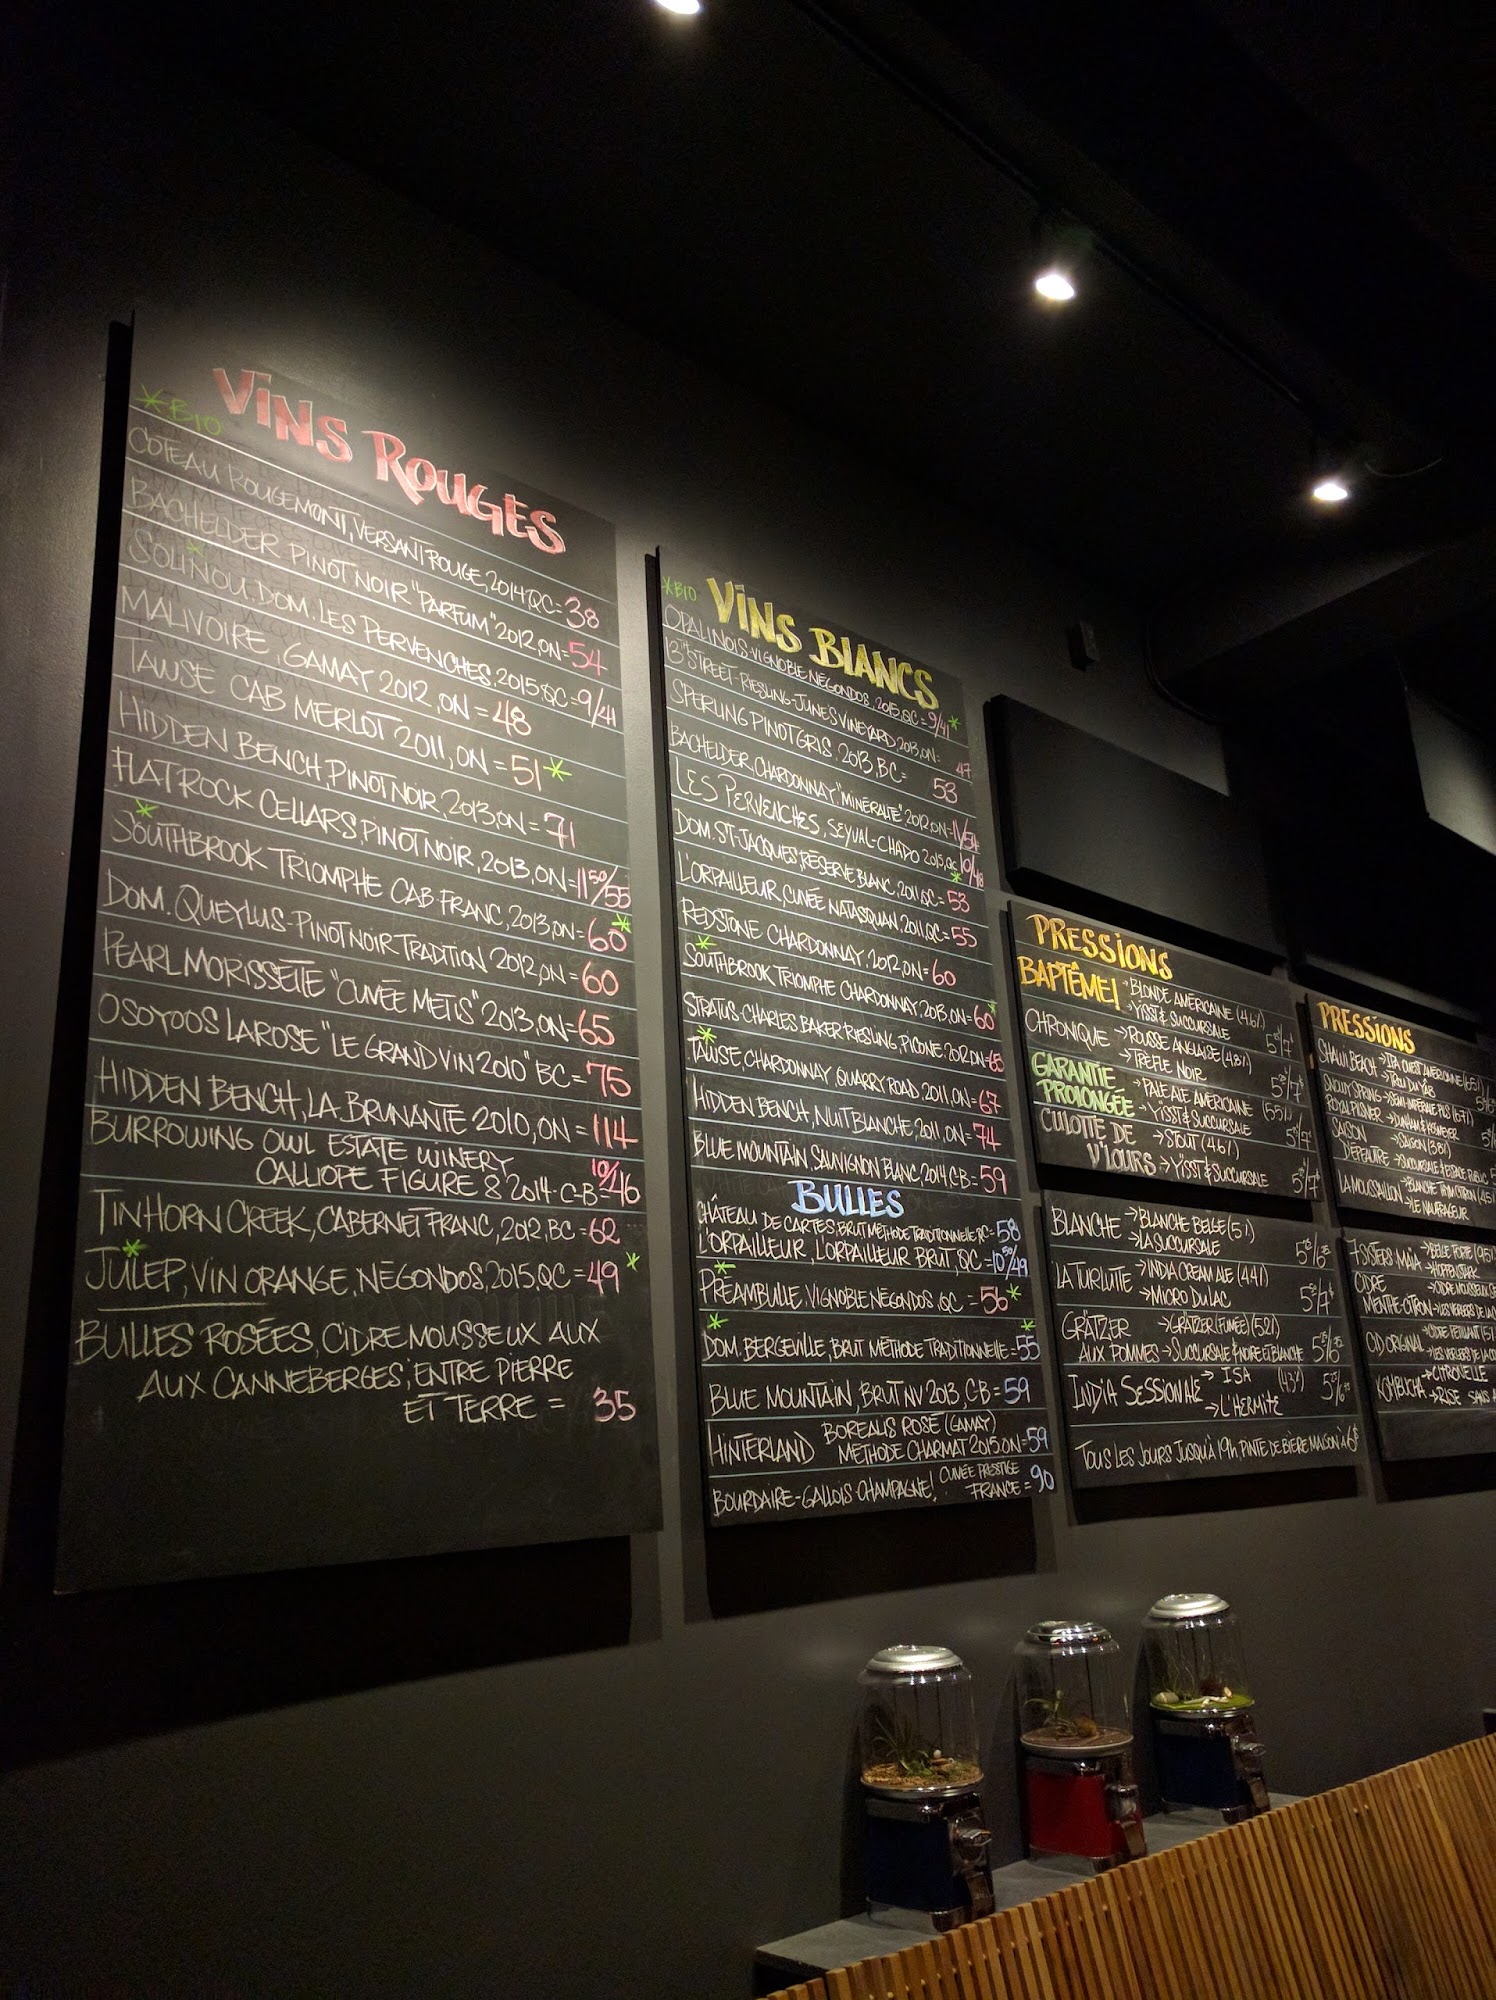 *BIO
VINS ROUGES
COTEAU ROUGEMONT, VERSANT ROUGE, 2014, QC = 38
BACHELDER PINOT NOIR "PARFUM" 2012, ON = 54
SOLINOU, DOM. LES PERVENCHES, 2015, QC = 9/41
MALIVOIRE, GAMAY 2012, ON = 48
TAWSE CAB MERLOT 2011, ON = 51 *
HIDDEN BENCH, PINOT NOIR, 2013, ON = 71
FLAT ROCK CELLARS, PINOT NOIR, 2013, ON = 11 50/55
SOUTHBROOK TRIOMPHE CAB FRANC, 2013, ON = 60 *
DOM. QUEYLUS - PINOT NOIR TRADITION 2012, ON = 60
PEARL MORISSETTE "CUVÉE METIS" 2013, ON = 65
OSOYOOS LAROSE "LE GRAND VIN 2010" BC = 75
HIDDEN BENCH, LA BRUNANTE 2010, ON = 114
BURROWING OWL ESTATE WINERY
CALLIOPE FIGURE 8 2014 - C-B = 10/46
TINHORN CREEK, CABERNET FRANC, 2012, BC = 62
JULEP, VIN ORANGE, NÉGONDOS, 2015, QC = 49 *
BULLES ROSÉES, CIDRE MOUSSEUX AUX
AUX CANNEBERGES, ENTRE PIERRE
ET TERRE = 35
*BIO
VINS BLANCS
OPALINOIS - VIGNOBLE NÉGONDOS, 2015, QC = 9/41 *
13TH STREET - RIESLING - JUNE'S VINEYARD, 2013, ON = 47
SPERLING PINOT GRIS 2013, BC = 53
BACHELDER, CHARDONNAY, "MINÉRALITÉ" 2012, ON = 11/54
LES PERVENCHES, SEYVAL-CHARDO 2015, QC 10/48
DOM. ST-JACQUES, RÉSERVE BLANC, 2011, QC = 53
L'ORPAILLEUR, CUVÉE NATASQUAN, 2011, QC = 55
REDSTONE CHARDONNAY, 2012, ON = 60
SOUTHBROOK TRIOMPHE CHARDONNAY, 2013, ON = 60 *
STRATUS - CHARLES BAKER RIESLING, PICONE, 2012, ON = 65
TAWSE, CHARDONNAY, QUARRY ROAD, 2011, ON = 67
HIDDEN BENCH, NUIT BLANCHE, 2011, ON = 74
BLUE MOUNTAIN, SAUVIGNON BLANC, 2014 C-B = 59
BULLES
CHÂTEAU DE CARTES BRUT MÉTHODE TRADITIONNELLE, QC = 58
L'ORPAILLEUR, L'ORPAILLEUR BRUT, QC = 10 50/49
PRÉAMBULLE, VIGNOBLE NÉGONDOS, QC = 56 *
DOM. BERGEVILLE, BRUT MÉTHODE TRADITIONNELLE = 55
BLUE MOUNTAIN, BRUT NV 2013, C-B = 59
HINTERLAND BOREALIS ROSÉ (GAMAY)
MÉTHODE CHARMAT 2015, ON = 59
BOURDAIRE-GALLOIS - CHAMPAGNE! CUVÉE PRESTIGE
FRANCE = 90
PRESSIONS
BAPTÊME! → BLONDE AMÉRICAINE (4.6%)
→ YISST & SUCCURSALE
CHRONIQUE → ROUSSE ANGLAISE (4.3%)
→ TRÈFLE NOIR
GARANTIE → PALE ALE AMÉRICAINE (5.5%)
PROLONGÉE → YISST & SUCCURSALE
CULOTTE DE → STOUT (4.6%)
V'LOURS → YISST & SUCCURSALE
BLANCHE → BLANCHE BELGE (5%)
→ LA SUCCURSALE
LA TURLUTTE → INDIA CREAM ALE (4.4%)
→ MICRO DU LAC
GRÄTZER → GRÄTZER (FUMÉE) (5.2%)
AUX POMMES → SUCCURSALE & NOIRE ET BLANCHE
INDIA SESSION ALE → ISA (4.3%)
→ L'HERMITE
TOUS LES JOURS JUSQU'À 19h, PINTE DE BIÈRE MAISON À 6$
PRESSIONS
SHAWI BEACH → IPA OUEST AMÉRICAINE (6.5%)
→ TROU DU YÂB
SNOWY SPRING
ROYAL PILSNER
SAISON → SAISON
LA MOUSSAILLON → BLANCHE THYM CITRON
→ LE NAUFRAGEUR
7 SISTERS MAÏA → BELLE FORTE (9.5%)
→ HOPFENSTARK
CIDRE
MENTHE-CITRON
CID ORIGINAL → CIDRE PÉTILLANT
KOMBUCHA → CITRONELLE
→ RISE